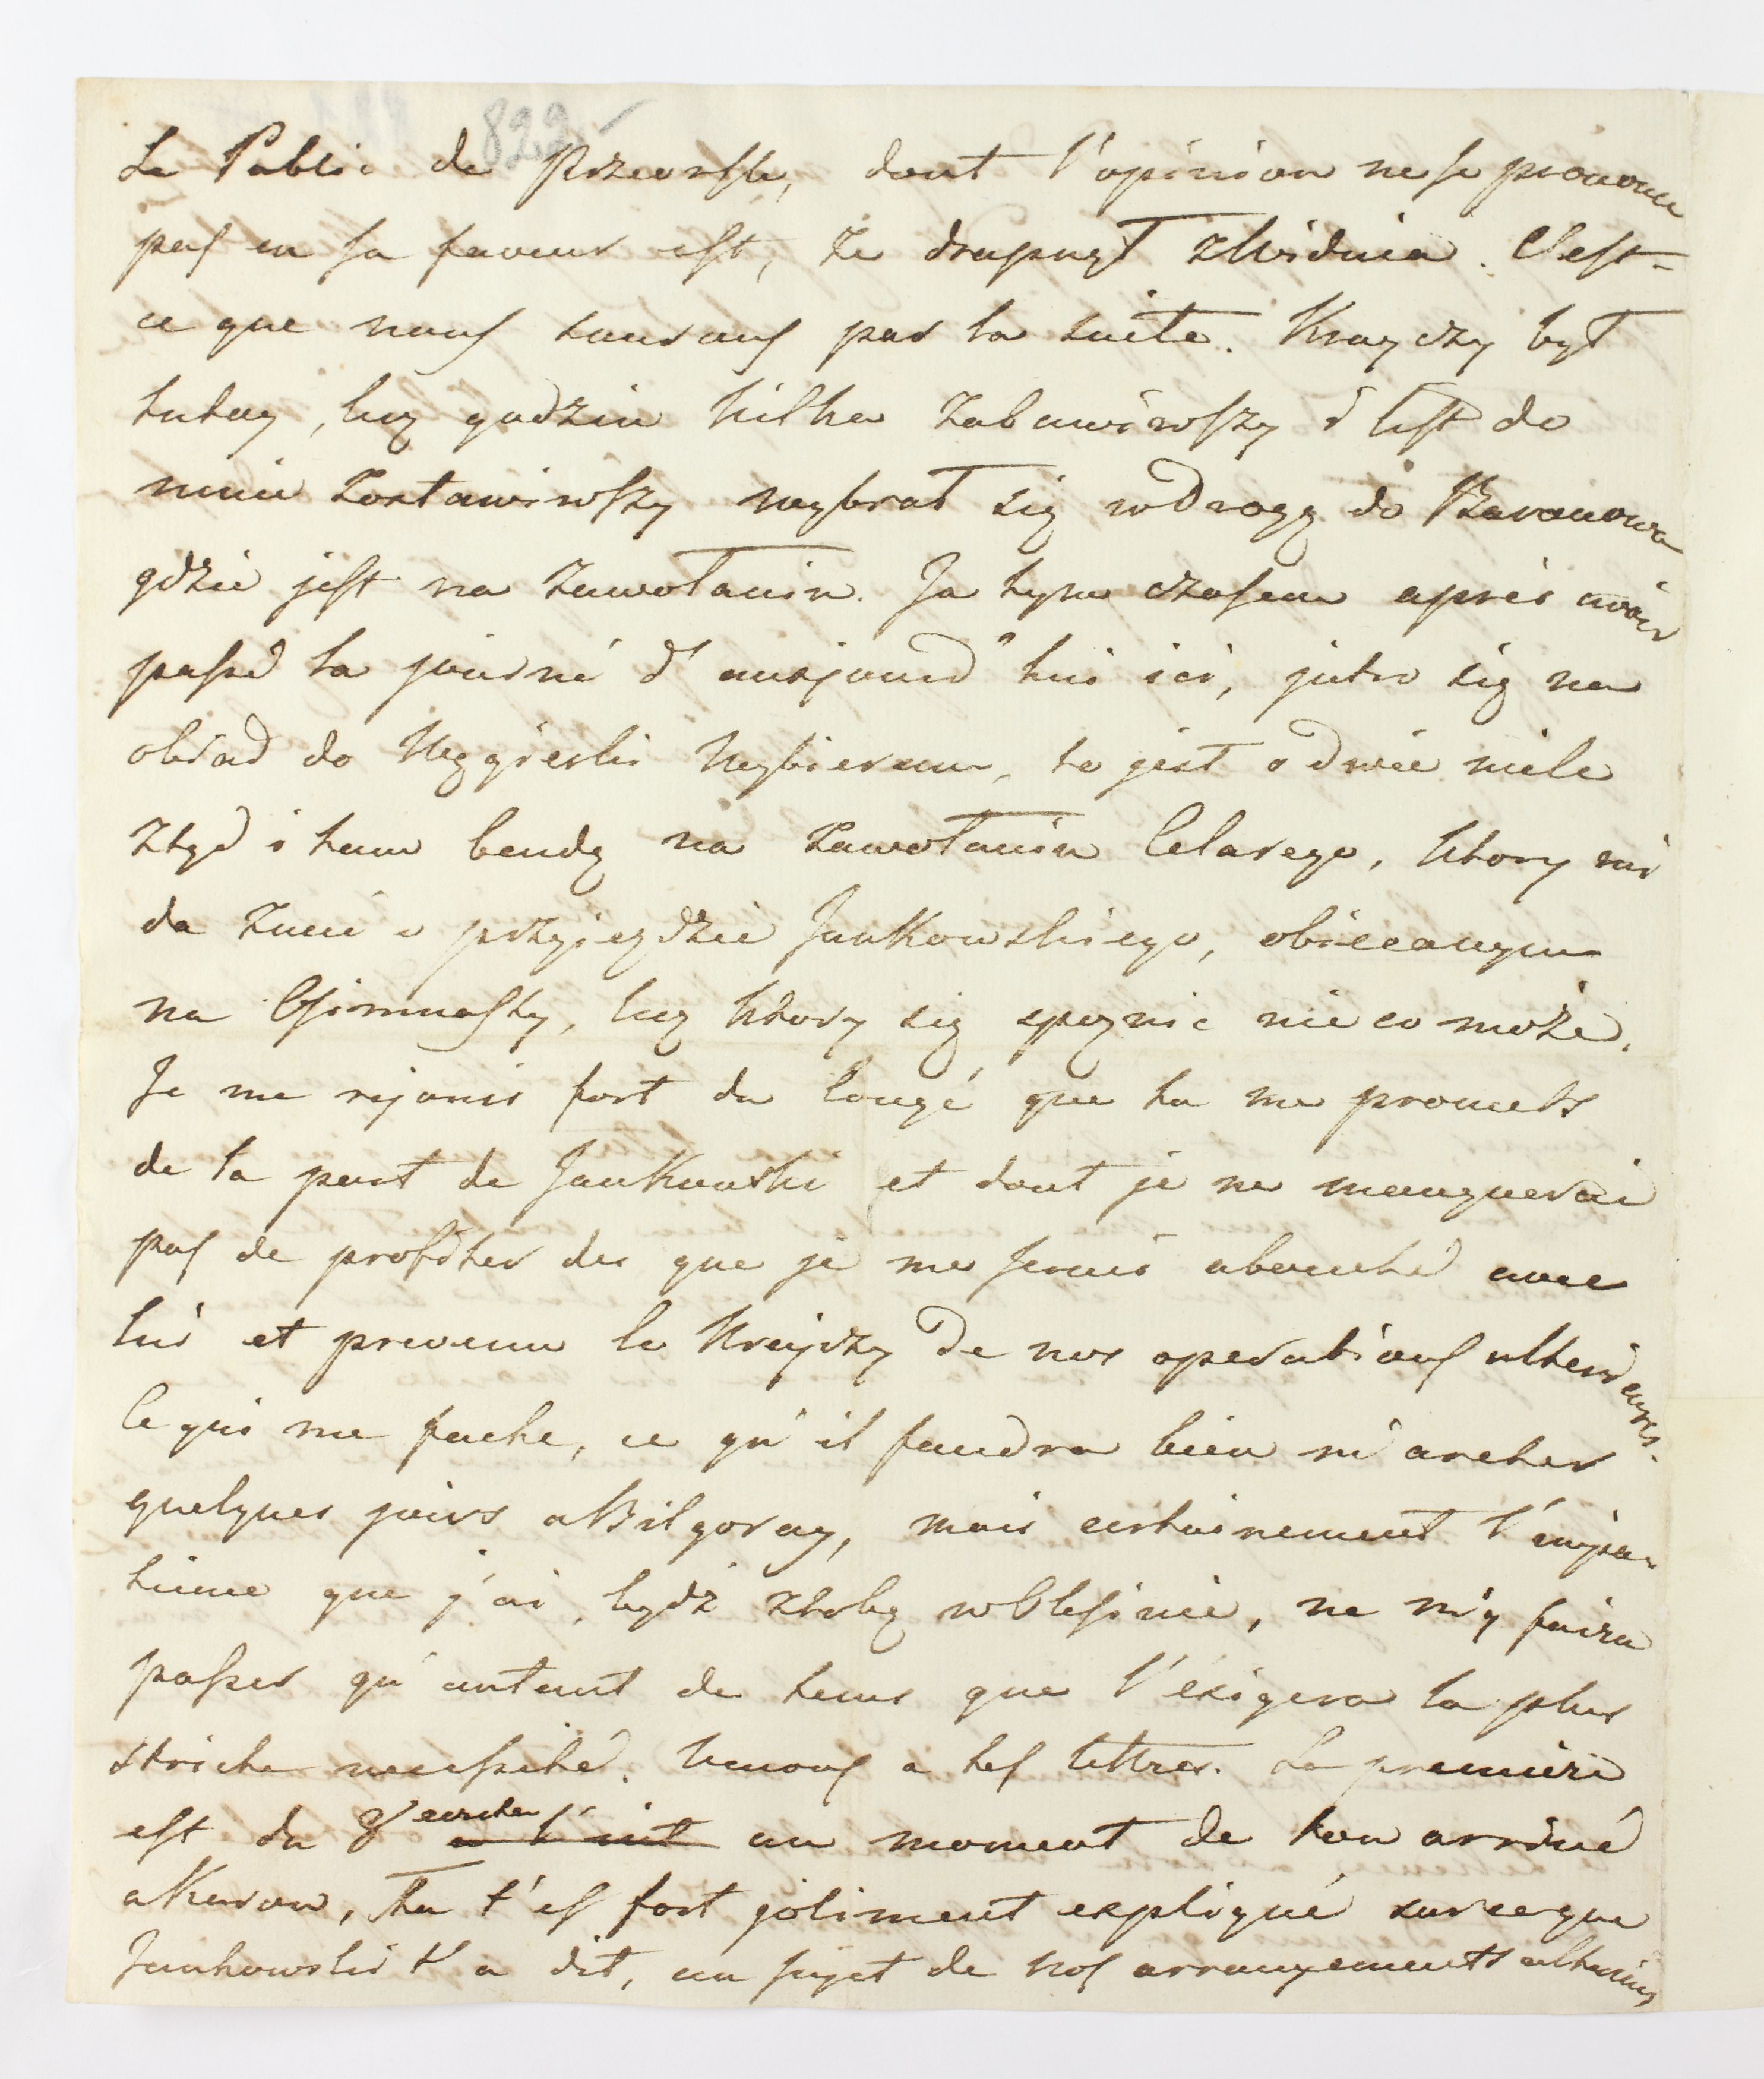 822
Le Public de Przeorsk, dont l'opinion ne se prononce
pas en sa faveur est, że drapnął z Widnia. C'est-
ce que nous saurons par la suite. Krayczy był
tutay, lecz godzin kilka zabawiwszy i list do
mnie zostawiwszy wybrał się w drogę do Baranowa
gdzie jest na zawołaniu. Ja tym czasem après avoir
passé la journé d'aujourd'hui ici, jutro się na
obiad do Węgierki wybieram, to jest o dwie mile
ztąd i tam bendę na zawołaniu Celarego, ktory mi
da znać o przyjeździe Jankowskiego, obiecanym
na , lecz ktory się spoznic nieco może.
Je me rejouis fort du Congé que tu me promets
de la part de Jankowski et dont je ne manquerai
pas de profiter des que je me serais abouché avec
lui et prevenu le Krayczy de nos operations ulterieures.
Ce qui me fache, ce qu'il faudra bien m'areter
quelques jours a Bilgoray, mais certainement l'impa-
tience que j'ai, bydź z tobą w Olesinie, ne m'y faira
passer qu'autant de tems que l'éxigera la plus
stricte necessité. Venons a tes lettres. La premiere
est du 8 ecrite au moment de ton arrivé
a Kurow, Tu t'es fort joliment expliqué sur ce que
Jankowski t'a dit, au sujet de nos arrangements ulterieurs